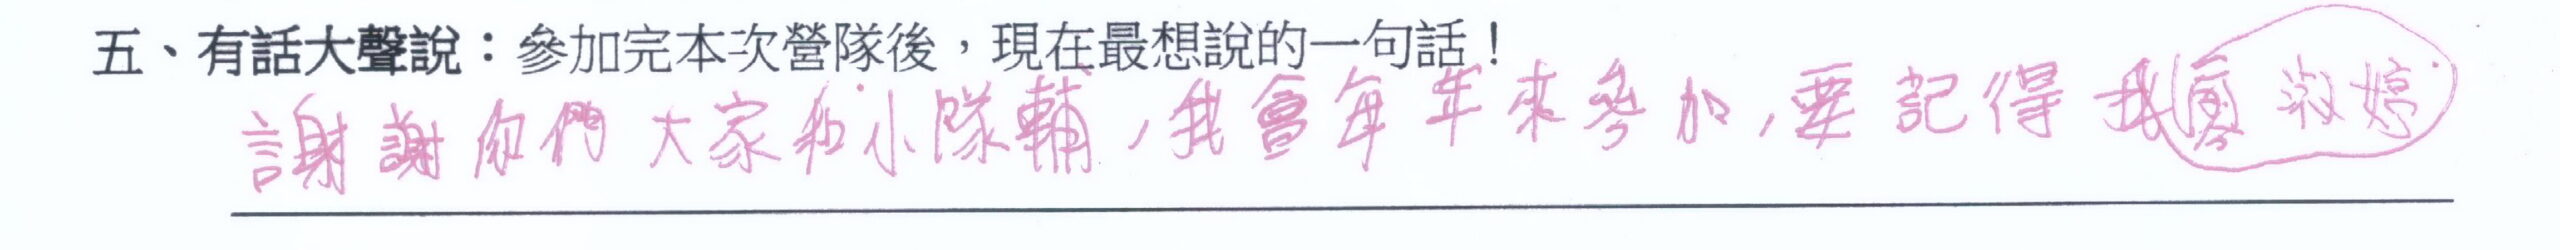 五、有話大聲說：參加完本次營隊後，現在最想說的一句話！
謝謝你們大家和小隊輔，我會每年來參加，要記得我廖淑婷